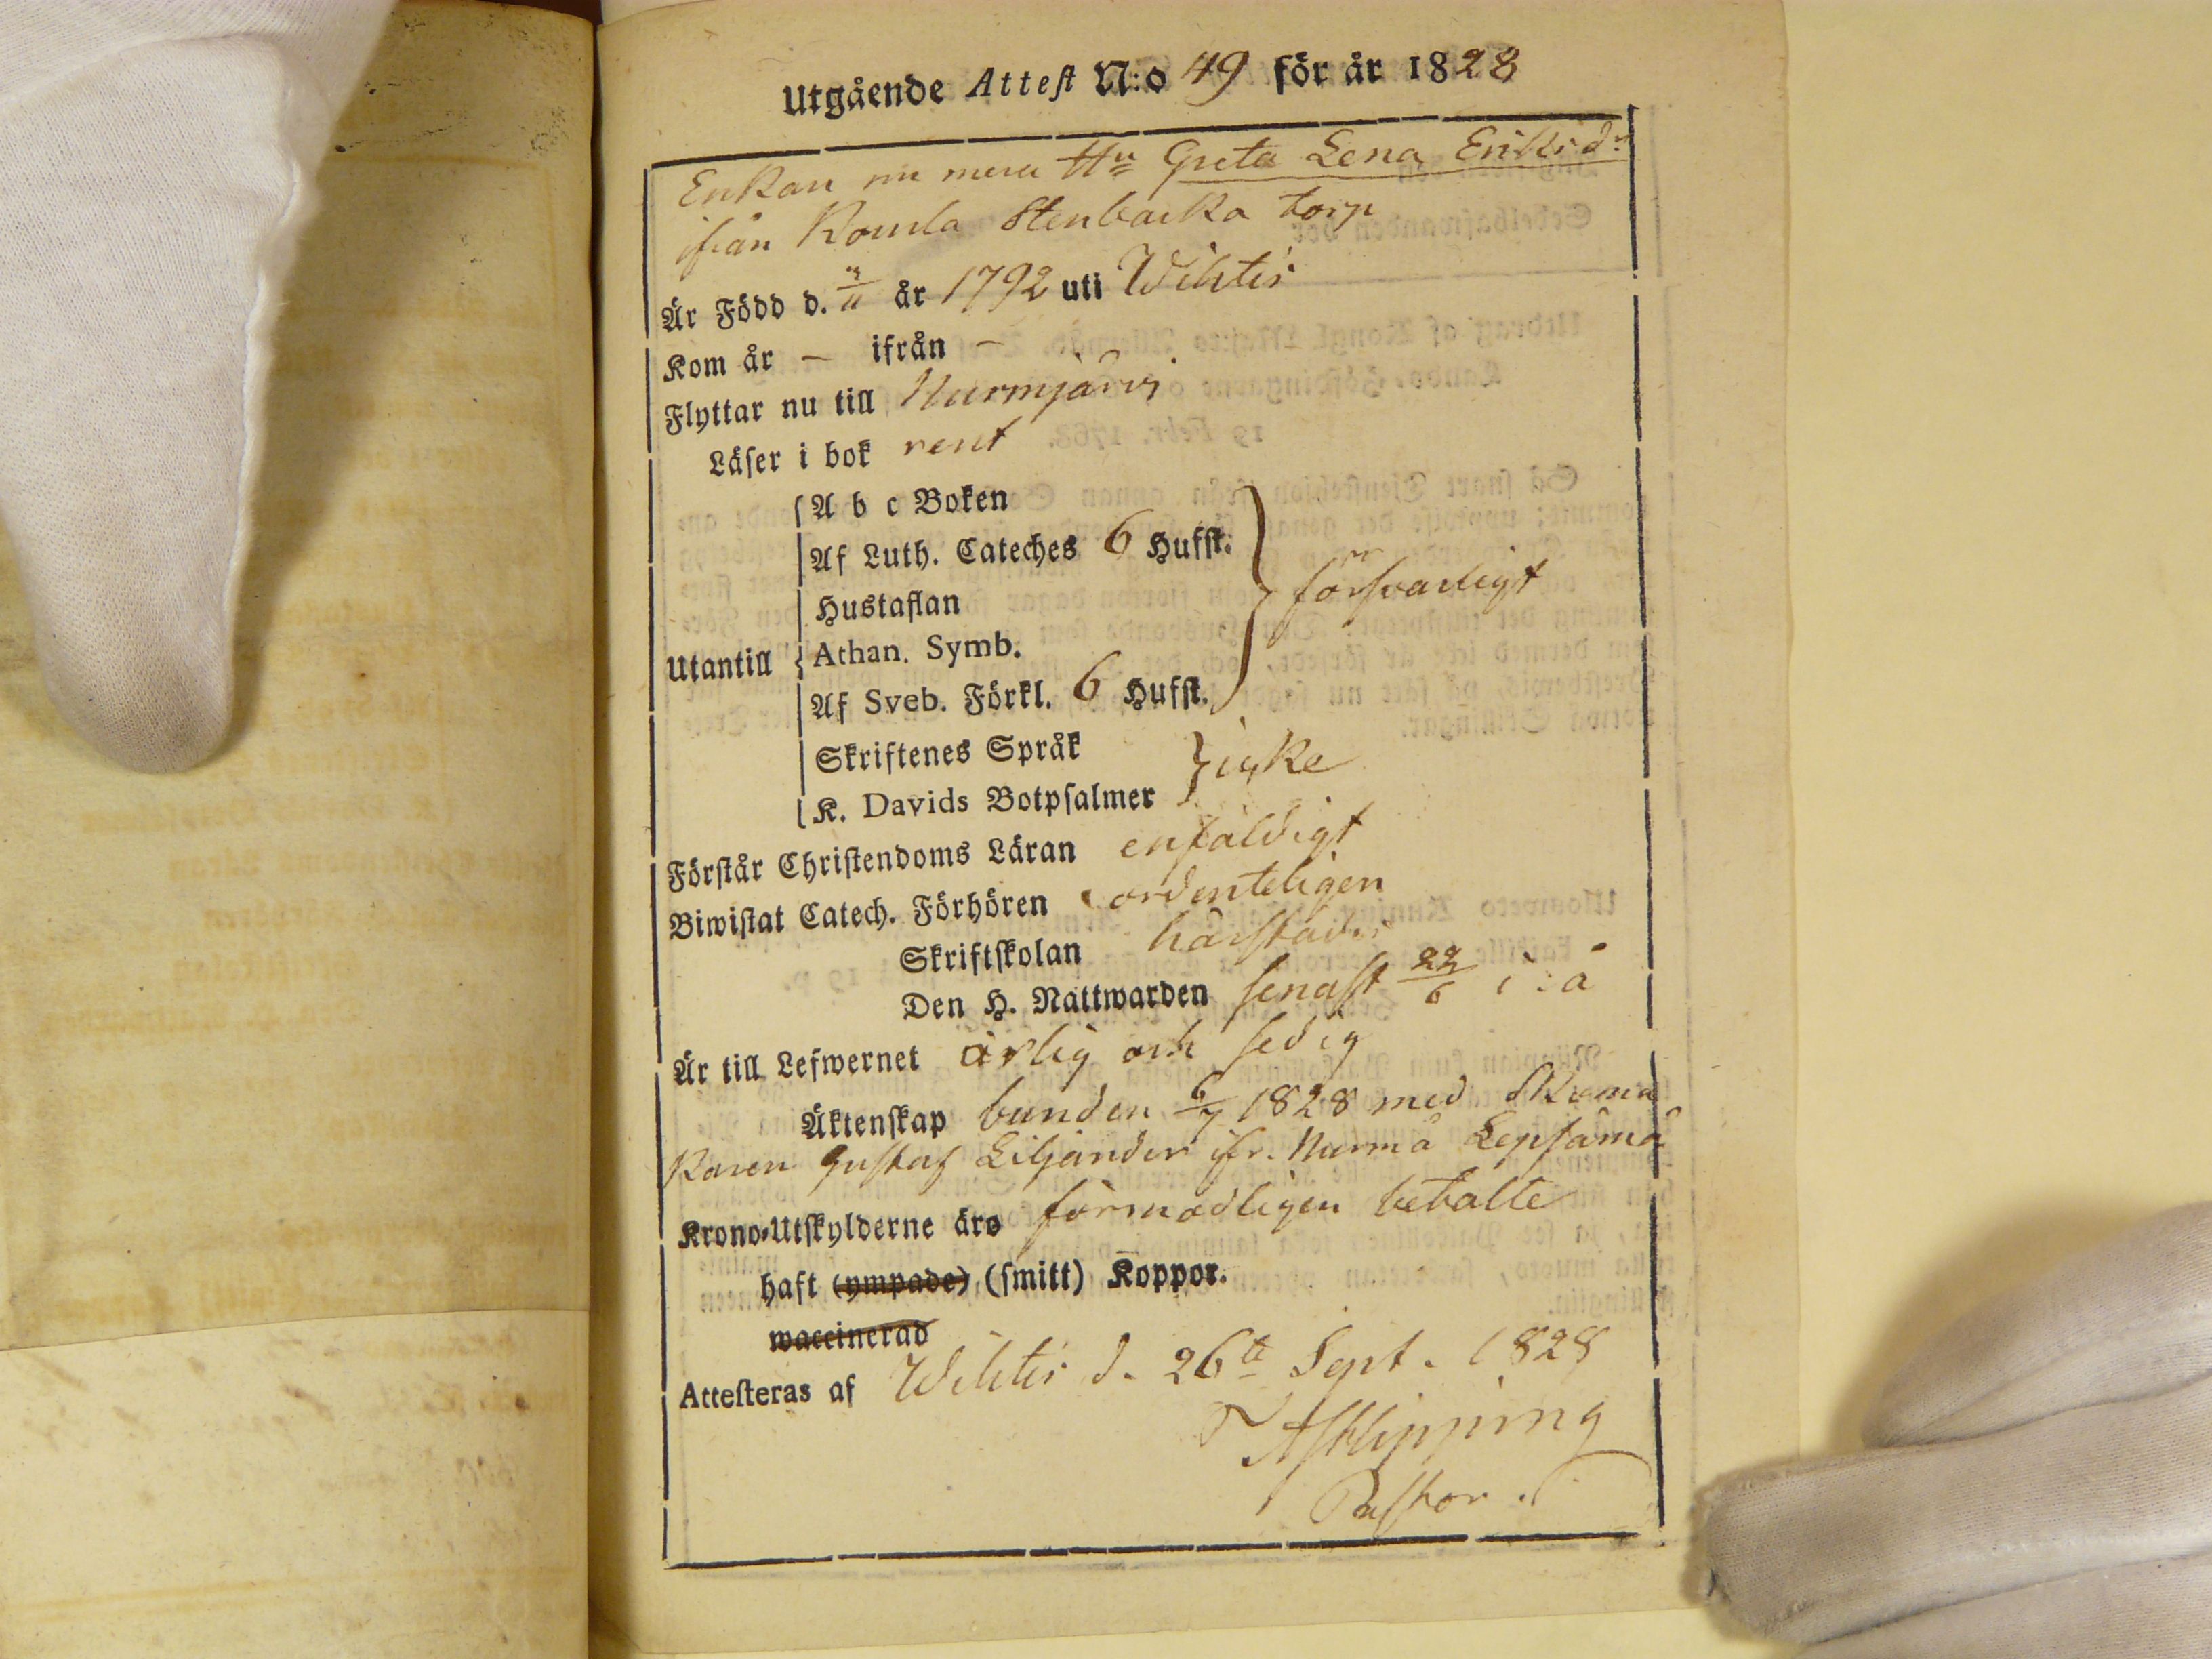 Utgående Attest N:o 49 för år 1828
Enkan nu mera Hu Greta Lena Eriksdr
ifrån Rourla Stenbacka torp
Är Född d. 3/11 år 1792 uti Wihtis
Kom år — ifrån —
Flyttar nu till Nurmjärvi
Läser i bok rent
A b c Boken
Af Luth. Cateches 6 Hufst.
Hustaflan försvarligt
Utantill Athan. Symb.
Af Sveb. Förkl. 6 Hufst.
Skriftenes Språk icke
K. Davids Botpsalmer
Förstår Christendoms Läran enfaldigt
Biwistat Catech. Förhören ordenteligen
Skriftskolan härstädes
Den H. Nattwarden senast 22/6 i: å
Är till Lefwernet ärlig och sedig
Äktenskap bunden 6/7 1828 med Skoma
karen Gustaf Liljander ifr. Nurmä Lepsämä
Krono-Utskylderne äro förmodligen betalte
haft (ympade) (smitt) Koppor.
waccinerad
Attesteras af Wihtis d. 26te Sept. 1828
Pastor.